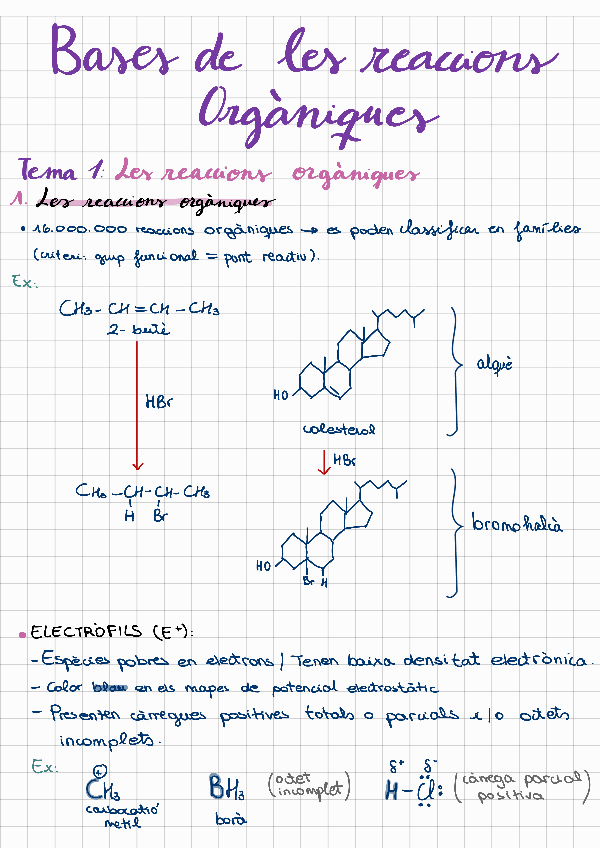 Bases de les reaccions
Orgàniques
Tema 1: Les reaccions orgàniques
1. Les reaccions orgàniques
• 16.000.000 reaccions orgàniques → es poden classificar en famílies
(criteri: grup funcional = punt reactiu).
Ex:
CH₃ - CH = CH - CH₃
2-butè
HBr
HO
colesterol
alquè
HBr
CH₃ - CH - CH - CH₃
H Br
HO
Br H
bromohalià
• ELECTRÒFILS (E⁺):
- Espècies pobres en electrons / Tenen baixa densitat electrònica.
- Color blau en els mapes de potencial electrostàtic
- Presenten càrregues positives totals o parcials i/o octets
incomplets.
Ex:
⊕
CH₃
carbocatió
metil
BH₃
borà
(octet
incomplet)
δ⁺ δ⁻
H - Cl:
(càrrega parcial
positiva)